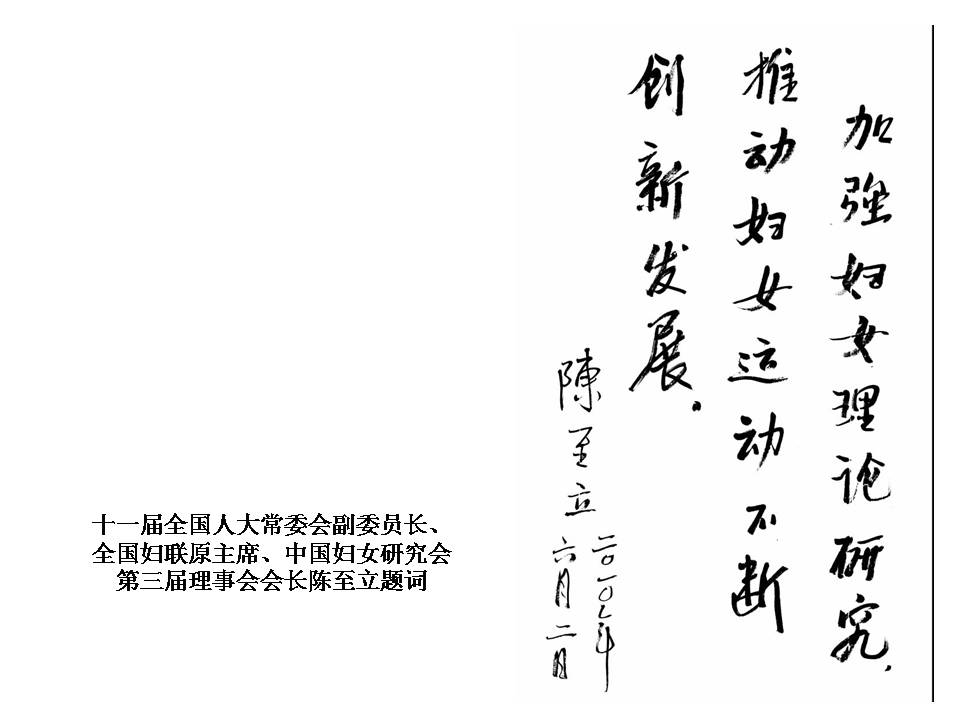 加强妇女理论研究，
推动妇女运动不断
创新发展。
陳至立
二〇一〇年
六月二日
十一届全国人大常委会副委员长、
全国妇联原主席、中国妇女研究会
第三届理事会会长陈至立题词